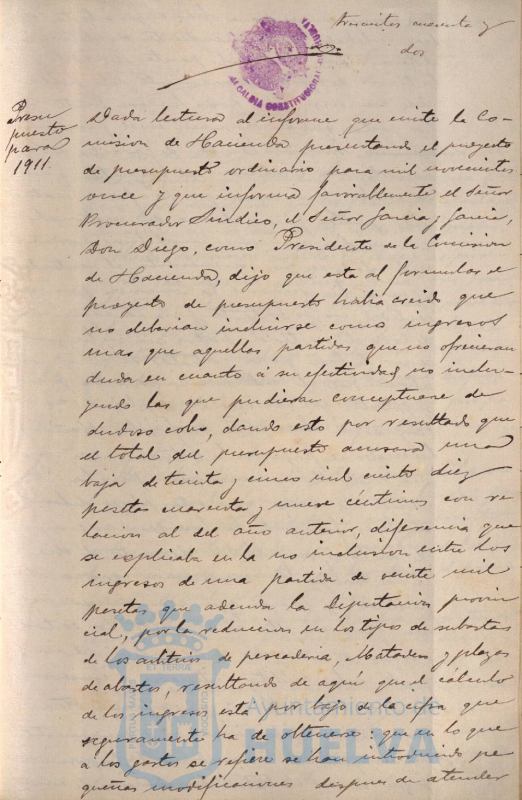 trescientos cuarenta y
dos
ALCALDIA CONSTITUCIONAL
Presu
puesto
para
1911.
Dada lectura al informe que emite la Co-
mision de Hacienda presentando el proyecto
de presupuesto ordinario para mil novecientos
once y que informa favorablemente el Señor
Procurador Sindico, el Señor Garcia y Garcia,
Don Diego, como Presidente de la Comision
de Hacienda, dijo que esta al formular el
proyecto de presupuesto habia creido que
no deberian incluirse como ingresos
mas que aquellas partidas que no ofrecieran
duda en cuanto á su efectividad, no inclu-
yendo las que pudieran conceptuarse de
dudoso cobro, dando esto por resultado que
el total del presupuesto acusara una
baja de treinta y cinco mil ciento diez
pesetas cuarenta y nueve céntimos con re
lacion al del año anterior, diferencia que
se explicaba en la no inclusion entre los
ingresos de una partida de veinte mil
pesetas que adeuda la Diputacion provin
cial, por la reduccion en los tipos de subastas
de los arbitrios de pescaderia, Matadero y plazas
de abastos, resultando de aquí que el calculo
de los ingresos está por bajo de la cifra que
seguramente ha de obtenerse: que en lo que
a los gastos se refiere se han introducido pe
queñas modificaciones despues de atender
Ayuntamiento de
HUELVA